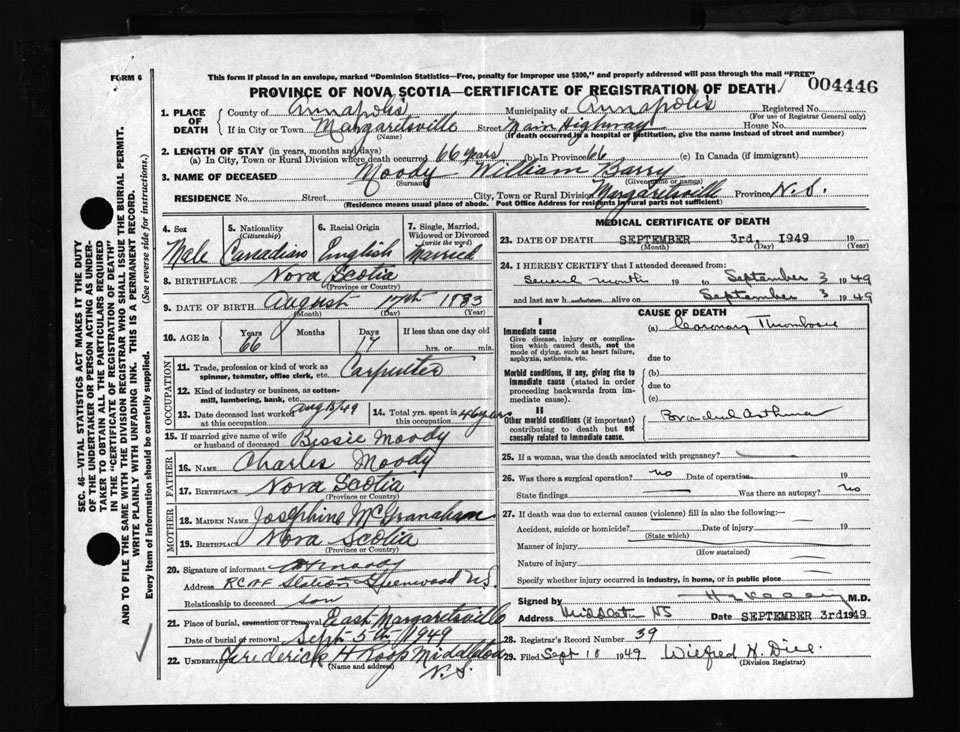 FORM 6
This form if placed in an envelope, marked "Dominion Statistics—Free, penalty for improper use $300," and properly addressed will pass through the mail "FREE"
PROVINCE OF NOVA SCOTIA—CERTIFICATE OF REGISTRATION OF DEATH
004446
1. PLACE OF DEATH
County of Annapolis Municipality of Annapolis Registered No.
(For use of Registrar General only)
If in City or Town Margaretsville Street Main Highway House No.
(Name) (If death occurred in a hospital or institution, give the name instead of street and number)
2. LENGTH OF STAY (in years, months and days)
(a) In City, Town or Rural Division where death occurred 66 years (b) In Province 66 (c) In Canada (if immigrant)
3. NAME OF DECEASED Moody William Barry
(Surname) (Given name or names)
RESIDENCE No. Street City, Town or Rural Division Margaretsville Province N.S.
(Residence means usual place of abode. Post Office Address for residents in rural parts not sufficient)
4. Sex Male
5. Nationality (Citizenship) Canadian
6. Racial Origin English
7. Single, Married, Widowed or Divorced (write the word) Married
8. BIRTHPLACE Nova Scotia
(Province or Country)
9. DATE OF BIRTH August 17th 1883
(Month) (Day) (Year)
10. AGE in Years 66 Months Days 17 If less than one day old hrs. or min.
OCCUPATION
11. Trade, profession or kind of work as spinner, teamster, office clerk, etc. Carpenter
12. Kind of industry or business, as cotton-mill, lumbering, bank, etc.
13. Date deceased last worked at this occupation Aug 15/49
14. Total yrs. spent in this occupation 46 years
15. If married give name of wife or husband of deceased Bessie Moody
FATHER
16. NAME Charles Moody
17. BIRTHPLACE Nova Scotia
(Province or Country)
MOTHER
18. MAIDEN NAME Josephine McGranaham
19. BIRTHPLACE Nova Scotia
(Province or Country)
20. Signature of informant Moody
Address RCAF Station Greenwood NS.
Relationship to deceased son
21. Place of burial, cremation or removal East Margaretsville
Date of burial or removal Sept 5th 1949
22. UNDERTAKER Frederick H Roop Middleton
(Name and address) N.S.
MEDICAL CERTIFICATE OF DEATH
23. DATE OF DEATH SEPTEMBER 3rd, 1949
(Month) (Day) (Year)
24. I HEREBY CERTIFY that I attended deceased from:
Several month 19 to September 3 1949
and last saw h alive on September 3 1949
CAUSE OF DEATH
I
Immediate cause
Give disease, injury or complication which caused death, not the mode of dying, such as heart failure, asphyxia, asthenia, etc.
(a) Coronary Thrombosis
due to
Morbid conditions, if any, giving rise to immediate cause (stated in order proceeding backwards from immediate cause).
(b)
due to
(c)
II
Other morbid conditions (if important) contributing to death but not causally related to immediate cause.
Bronchial Asthma
25. If a woman, was the death associated with pregnancy?
26. Was there a surgical operation? no Date of operation 19
State findings Was there an autopsy? no
27. If death was due to external causes (violence) fill in also the following:—
Accident, suicide or homicide? Date of injury 19
(State which)
Manner of injury
(How sustained)
Nature of injury
Specify whether injury occurred in industry, in home, or in public place
Signed by M.D.
Address Middleton NS Date SEPTEMBER 3rd 1949
28. Registrar's Record Number 39
29. Filed Sept 10 1949
(Division Registrar)
SEC. 46—VITAL STATISTICS ACT MAKES IT THE DUTY
OF THE UNDERTAKER OR PERSON ACTING AS UNDER-
TAKER TO OBTAIN ALL THE PARTICULARS REQUIRED
IN THE "CERTIFICATE OF REGISTRATION OF DEATH"
AND TO FILE THE SAME WITH THE DIVISION REGISTRAR WHO SHALL ISSUE THE BURIAL PERMIT.
WRITE PLAINLY WITH UNFADING INK. THIS IS A PERMANENT RECORD.
Every item of information should be carefully supplied. (See reverse side for instructions.)